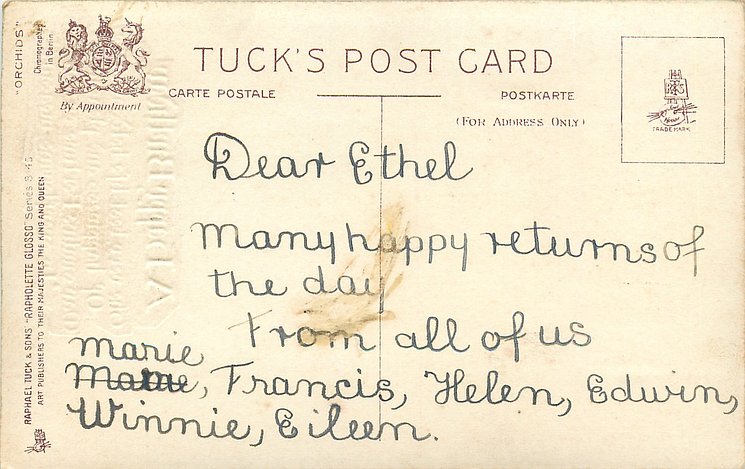 "ORCHIDS"
Chromographed
in Berlin
By Appointment
TUCK'S POST CARD
CARTE POSTALE
POSTKARTE
(FOR ADDRESS ONLY)
TRADE MARK
RAPHAEL TUCK & SONS "RAPHOLETTE GLOSSO"
ART PUBLISHERS TO THEIR MAJESTIES THE KING AND QUEEN
Dear Ethel
Many happy returns of
the day
From all of us
Marie
, Francis, Helen, Edwin,
Winnie, Eileen.